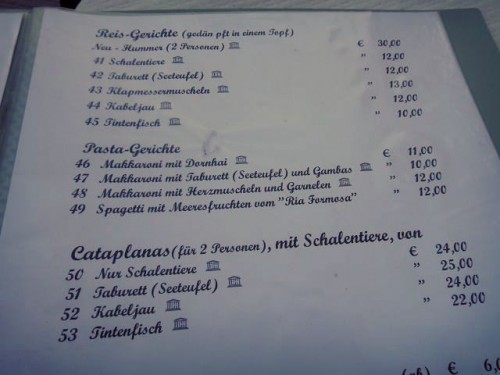 Reis-Gerichte (gedün pft in einem Topf)
Neu - Hummer (2 Personen) € 30,00
41 Schalentiere " 12,00
42 Taburett (Seeteufel) " 12,00
43 Klapmessermuscheln " 13,00
44 Kabeljau " 12,00
45 Tintenfisch " 10,00
Pasta-Gerichte
46 Makkaroni mit Dornhai € 11,00
47 Makkaroni mit Taburett (Seeteufel) und Gambas " 10,00
48 Makkaroni mit Herzmuscheln und Garnelen " 12,00
49 Spagetti mit Meeresfruchten vom "Ria Formosa" " 12,00
Cataplanas (für 2 Personen), mit Schalentiere, von
50 Nur Schalentiere € 24,00
51 Taburett (Seeteufel) " 25,00
52 Kabeljau " 24,00
53 Tintenfisch " 22,00
€ 6,0